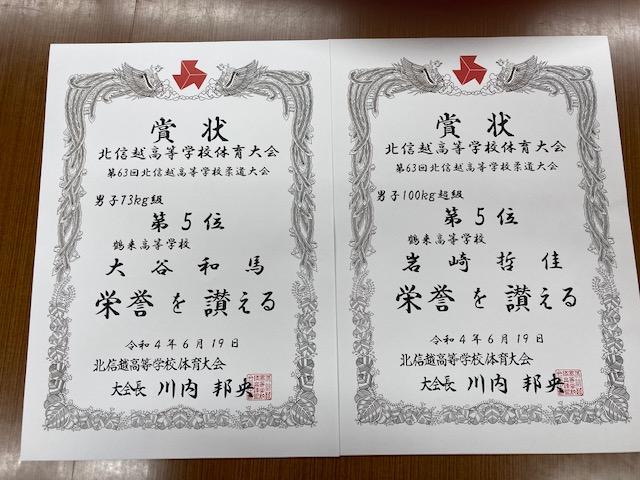 賞状
北信越高等学校体育大会
第63回北信越高等学校柔道大会
男子73kg級
第5位
鶴来高等学校
大谷和馬
栄誉を讃える
令和4年6月19日
北信越高等学校体育大会
大会長 川内邦央
賞状
北信越高等学校体育大会
第63回北信越高等学校柔道大会
男子100kg超級
第5位
鶴来高等学校
岩崎哲佳
栄誉を讃える
令和4年6月19日
北信越高等学校体育大会
大会長 川内邦央